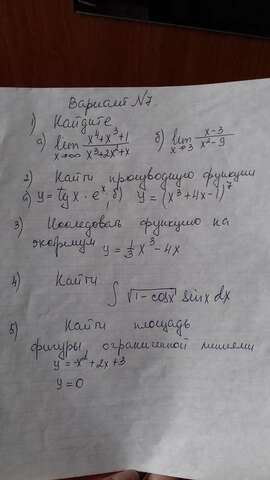 Вариант №7
1) Найдите
а) lim x→∞ x⁴+x³+1 / x³+2x²+x   б) lim x→3 x-3 / x²-9
2) Найти производную функции
а) y = tg x · eˣ, б) y = (x³+4x-1)⁷
3) Исследовать функцию на
экстремум y = 1/3 x³ - 4x
4) Найти ∫ √1-cosx sinx dx
5) Найти площадь
фигуры ограниченной линиями
y = -x² + 2x + 3
y = 0